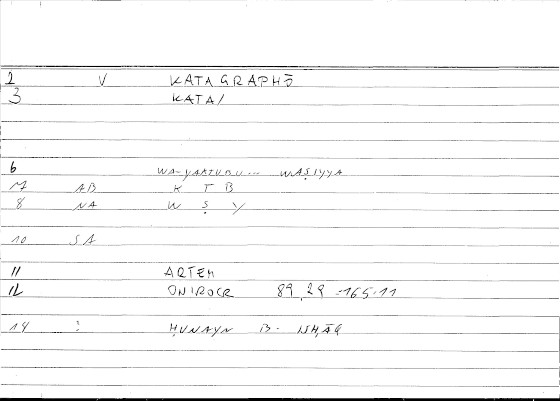 2 V KATAGRAPHŌ
3 KATA/
6 WA-YAKTUBU... WAṢIYYA
7 AB K T B
8 NA W Ṣ Y
10 SA
11 ARTEM
12 ONIROCR 89,29 = 165,11
14 : ḤUNAYN B. ISḤĀQ